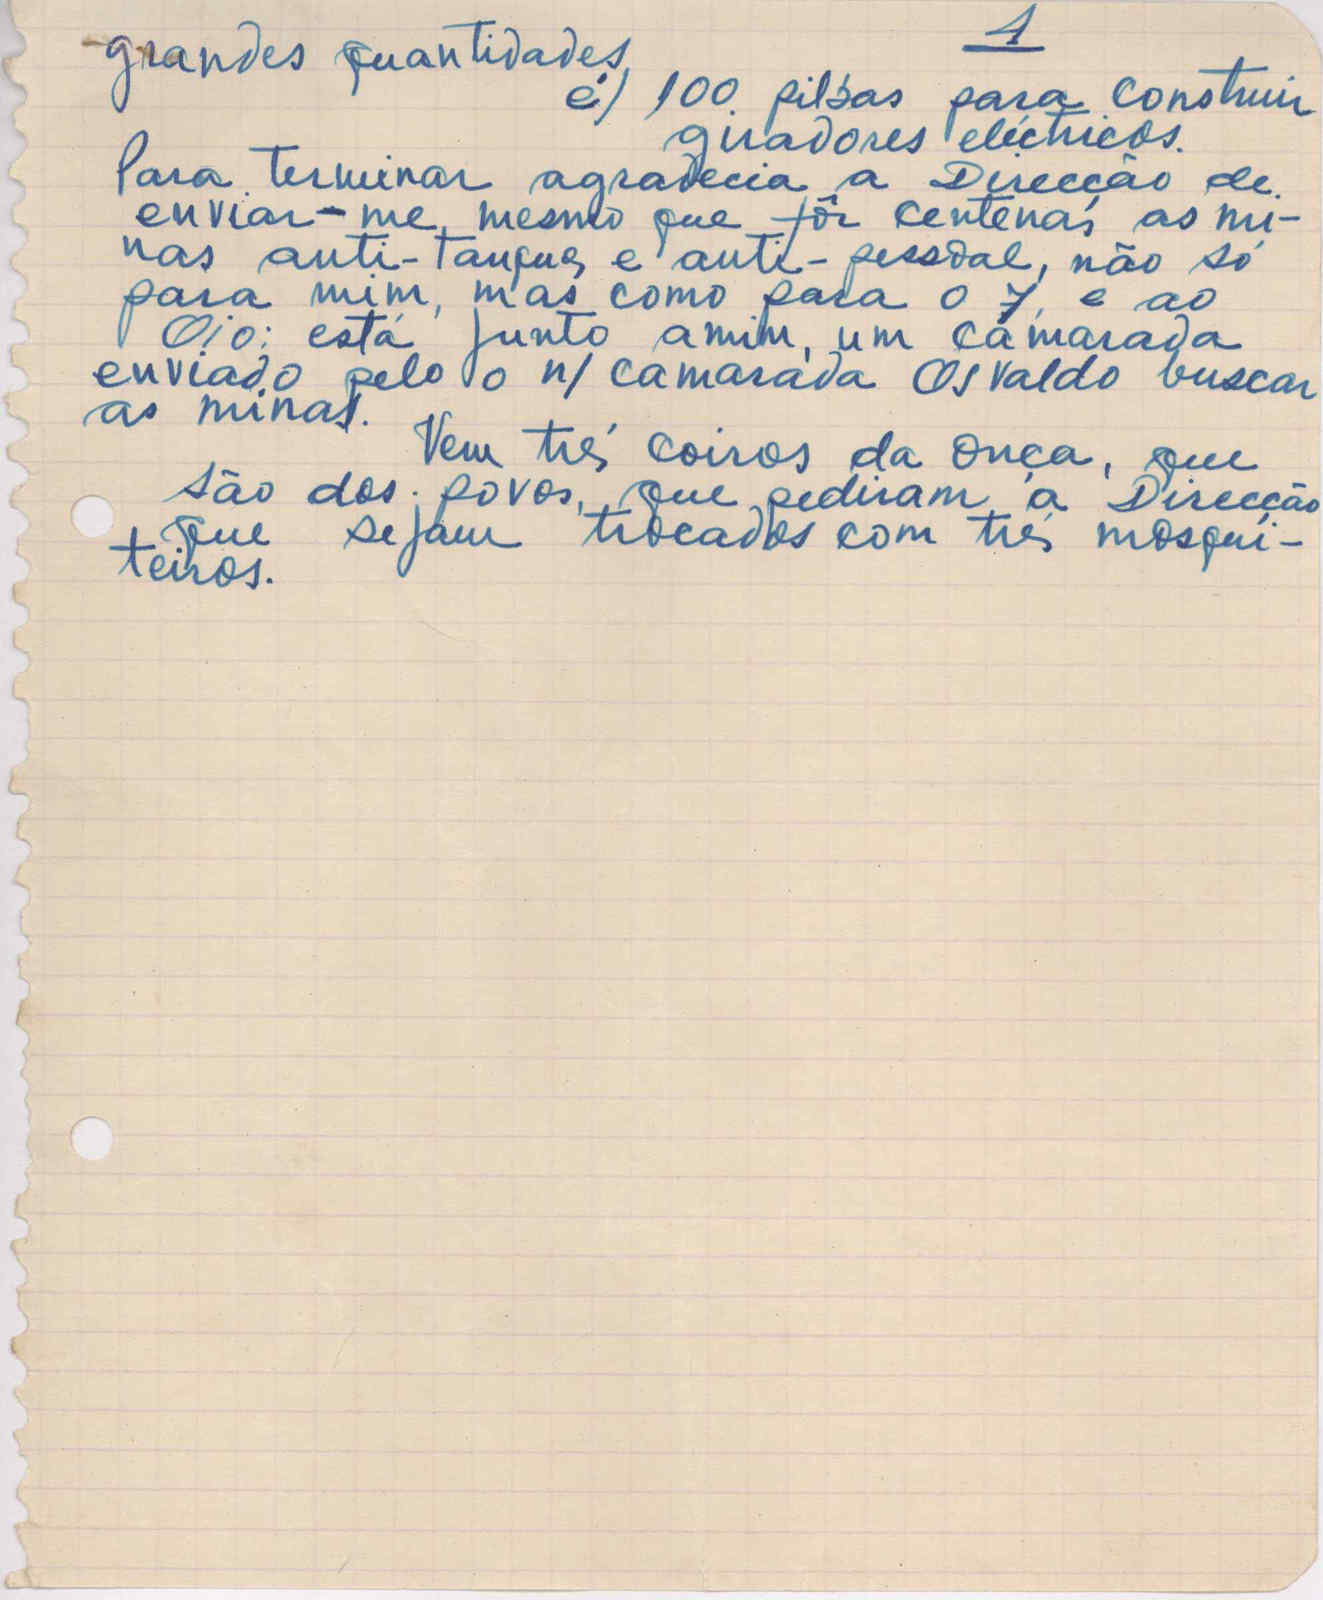 1
grandes quantidades
é) 100 pilhas para construir
giradores eléctricos.
Para terminar agradecia a Direcção de
enviar-me, mesmo que fôr centenas as mi-
nas anti-tanques e anti-pessoal, não só
para mim, mas como para o 7, e ao
Oio: está junto amim, um camarada
enviado pelo o n/ camarada Osvaldo buscar
as minas.
Vem três coiros da onça, que
são dos povos, que pediram a Direcção
que sejam trocados com três mosqui-
teiros.